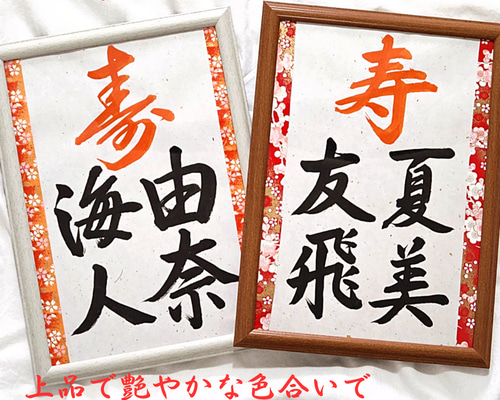 寿
由奈
海人
寿
夏美
友飛
上品で艶やかな色合いで